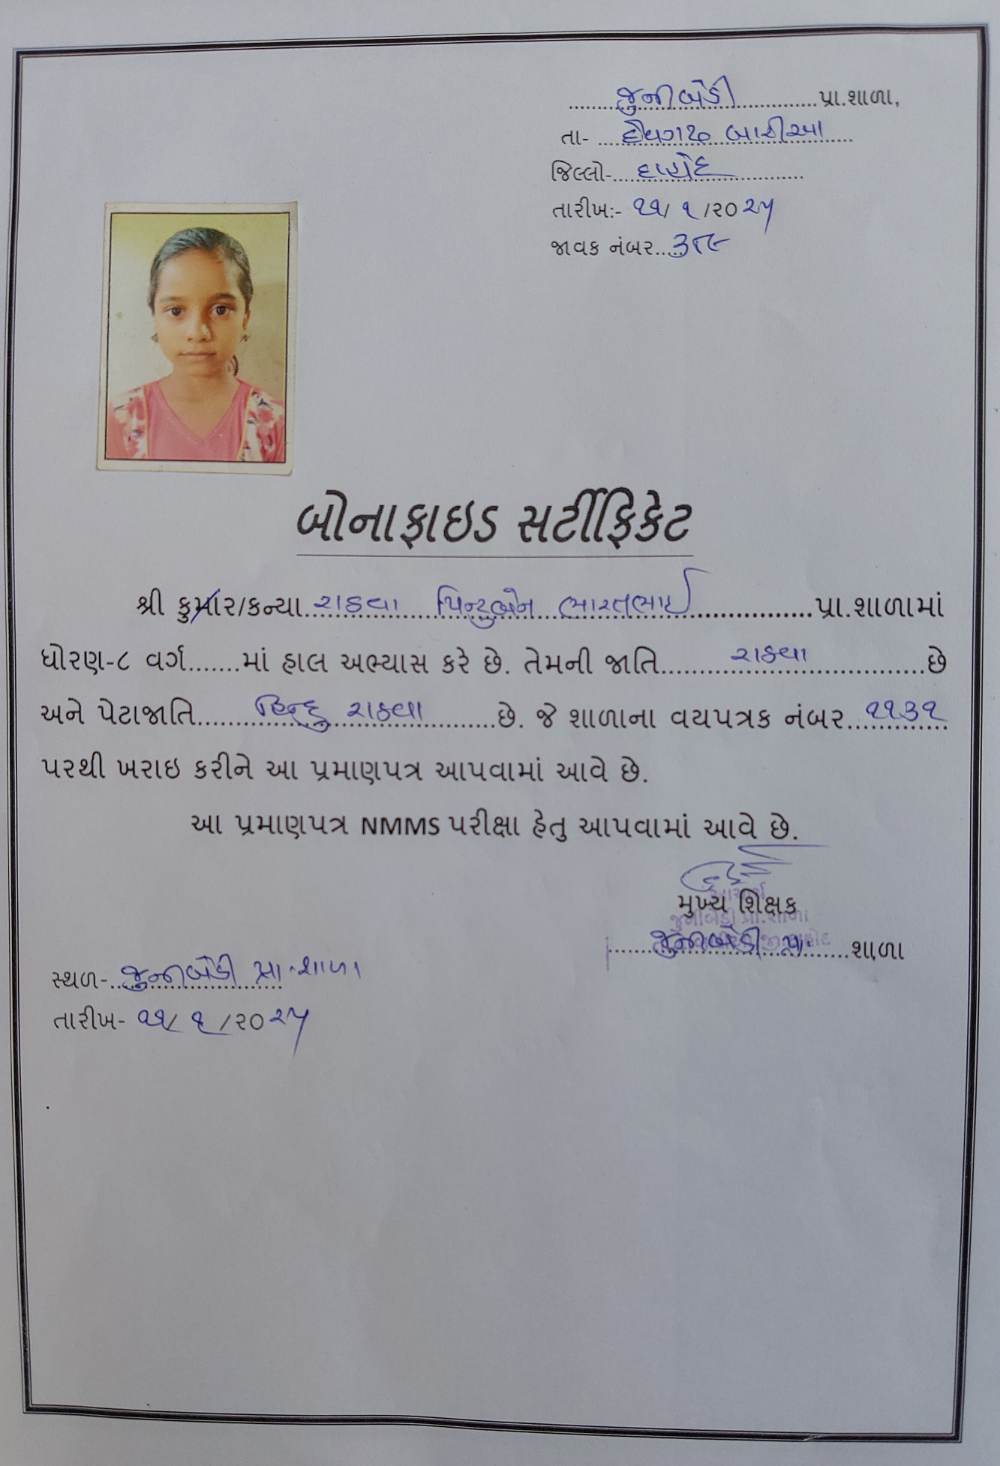 જુનીબેડી પ્રા.શાળા,
તા- દેવગઢ બારીઆ
જિલ્લો- દાહોદ
તારીખ:- ૨૧/ ૧ /૨૦૨૫
જાવક નંબર..
બોનાફાઇડ સર્ટીફિકેટ
શ્રી કુમાર/કન્યા રાઠવા પિન્ટુબેન ભારતભાઈ પ્રા.શાળામાં
ધોરણ-૮ વર્ગ.......માં હાલ અભ્યાસ કરે છે. તેમની જાતિ રાઠવા છે
અને પેટાજાતિ હિન્દુ રાઠવા છે. જે શાળાના વયપત્રક નંબર ૧૧૩૧
પરથી ખરાઇ કરીને આ પ્રમાણપત્ર આપવામાં આવે છે.
આ પ્રમાણપત્ર NMMS પરીક્ષા હેતુ આપવામાં આવે છે.
મુખ્ય શિક્ષક
જુનીબેડી પ્રા. શાળા
સ્થળ- જુનીબેડી પ્રા.શાળા
તારીખ- ૨૧/ ૧ /૨૦૨૫